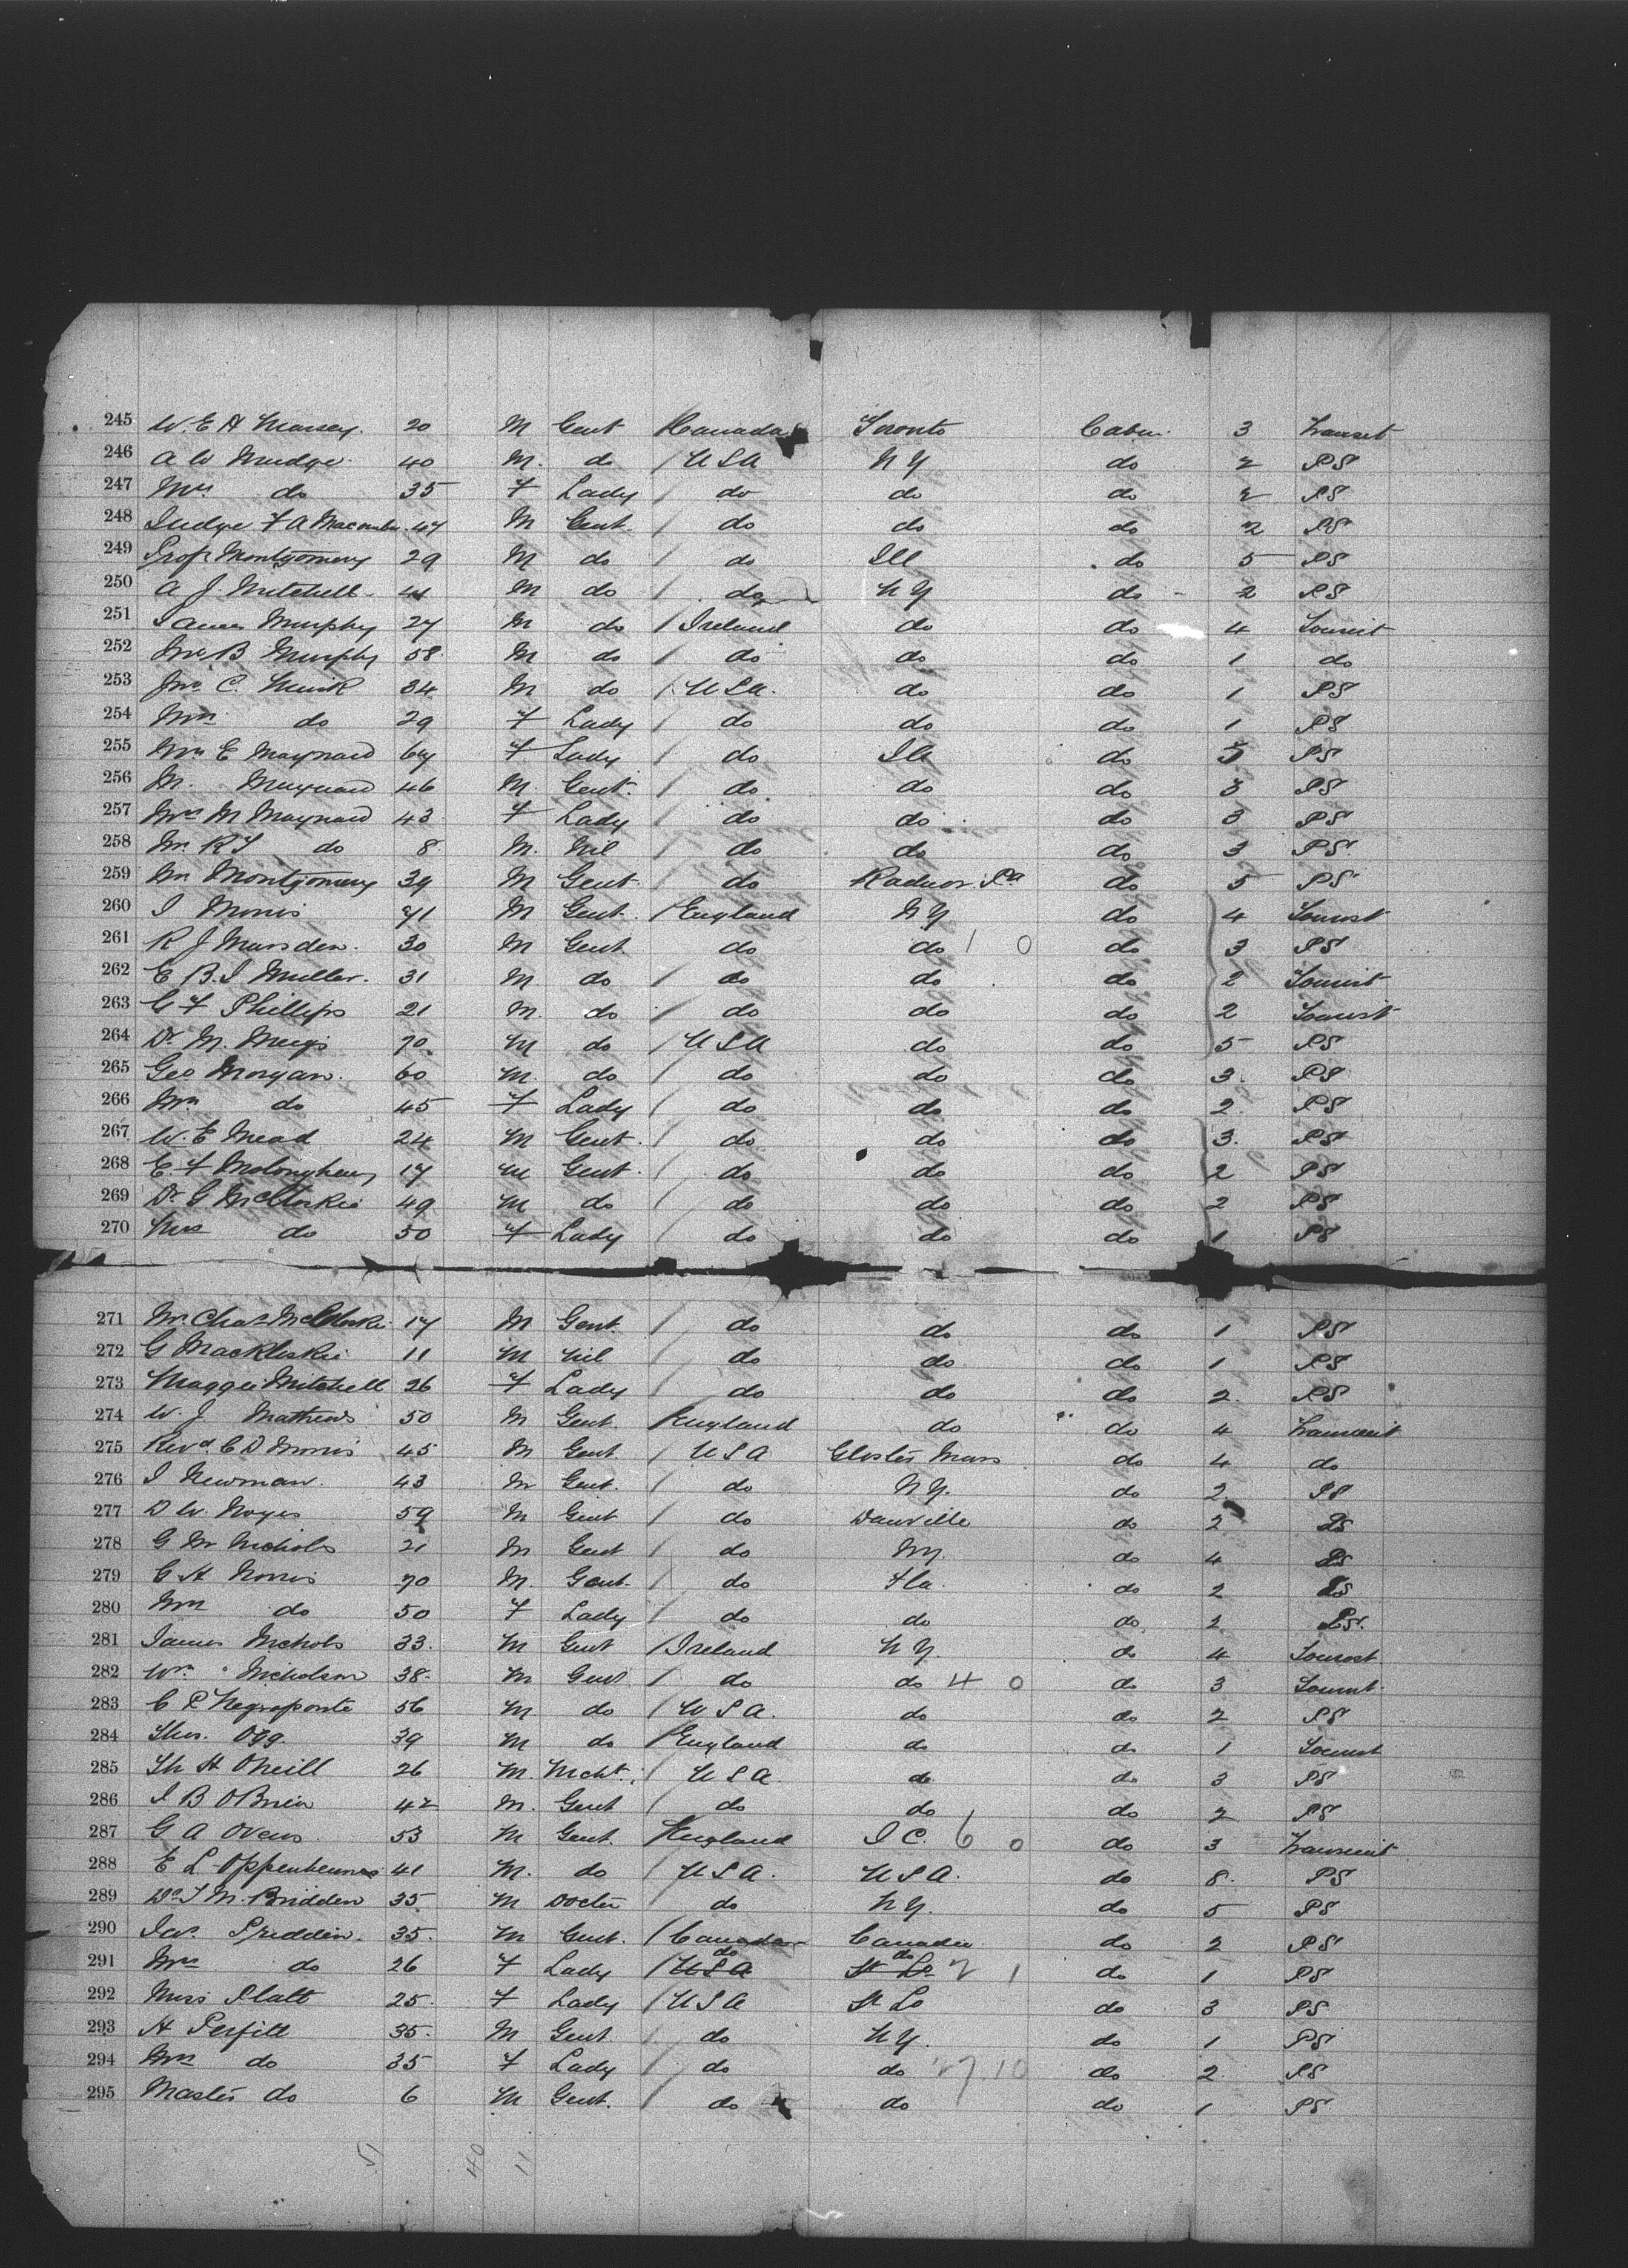 245 W. E H Massey. 20 M Gent / Canada Toronto Cabin 3 Transit
246 A W Mudge 40 M. do / USA NY do 2 PS
247 Mrs do 35 F Lady / do do do 2 PS
248 Judge F A Macomber 47 M Gent. / do do do 2 PS
249 Prof Montgomery 29 M do / do Ill do 5 PS
250 A J. Mitchell 41 M do / do NY do 2 PS
251 James Murphy 27 M do / Ireland do do 4 Tourist
252 Mr B Murphy 58 M do / do do do 1 do
253 Jno C. 34 M do / USA. do do 1 PS
254 Mrs do 29 F Lady / do do do 1 PS
255 Mrs E Maynard 64 F Lady / do Ill do 3 PS
256 M. Maynard 46 M Gent. / do do do 3 PS
257 Mrs M Maynard 43 F Lady / do do do 3 PS
258 Mr. R do 8 M. Nil / do do do 3 PS
259 Mr Montgomery 39 M Gent / do Radnor Pa do 5 PS
260 J Morris 41 M Gent. / England NY. do 4 Tourist
261 R J Marsden. 30 M Gent do do 1 0 do 3 PS
262 E B. J Muller. 31 M do / do do do 2 Tourist
263 G F Phillips 21 M. do / do do do 2 Tourist
264 Dr M. Meigs 70 M do / USA do do 5 PS
265 Geo Morgan. 60 M. do / do do do 3. PS
266 Mrs do 45 F Lady / do do do 2. PS
267 W. E Mead 24 M Gent. / do do do 3. PS
268 E. F 17 M Gent. / do do do 2 PS
269 Dr G McCloskie 49 M do / do do do 2 PS
270 Mrs do 50 F Lady / do do do 1 PS
271 Mr Chas McCloskie 17 M Gent. / do do do 1 PS
272 G Mackloskie 11 M Nil / do do do 1 PS
273 Maggie Mitchell 26 F Lady / do do do 2. PS
274 W. J Mathews 50 M Gent. / England do do 4 Transient
275 Revd. C D Morris 45 M Gent. / USA Gloster Mass do 4 do
276 J Newman. 43 M Gent. / do NY. do 2. PS
277 D W. Noyes 59 M Gent / do Danville do 2 PS
278 G M Nichols 21 M Gent / do NY. do 4 PS
279 C H Norris 70 M. Gent. / do Fla. do 2 PS
280 Mrs do 50 F Lady / do do do 2 PS.
281 James Nichols 33. M Gent / Ireland NY. do 4 Tourist
282 Wm Nicholson 38. M Gent / do do 4 0 do 3 Tourist
283 C P Negroponte 56 M. do / USA. do do 2 PS
284 Thos. Ogg. 39 M do / England do do 1 Tourist
285 Th H ONeill 26 M. Mcht. / USA. do do 3 PS
286 J B OBrien 42 M. Gent / do do do 2 PS
287 G A Ovens 53 M Gent. / England J C. 6 0 do 3 Transient
288 E L Oppenheimer 41 M. do / USA. USA. do 8. PS
289 Dr J M. Bridden 35. M Doctor do NY. do 5 PS
290 Jas. Pridden. 35. M Gent. / Canada Canada do 2 PS
291 Mrs do 26 F Lady / USA do St Lo do 7 1 do 1 PS
292 Miss Platt 25. F Lady / USA St Lo do 3 PS
293 H 35. M Gent. / do NY. do 1 PS
294 Mrs do 35 F Lady / do do 27.10 do 2. PS
295 Master do 6 M Gent. / do do do 1 PS
51 40 11